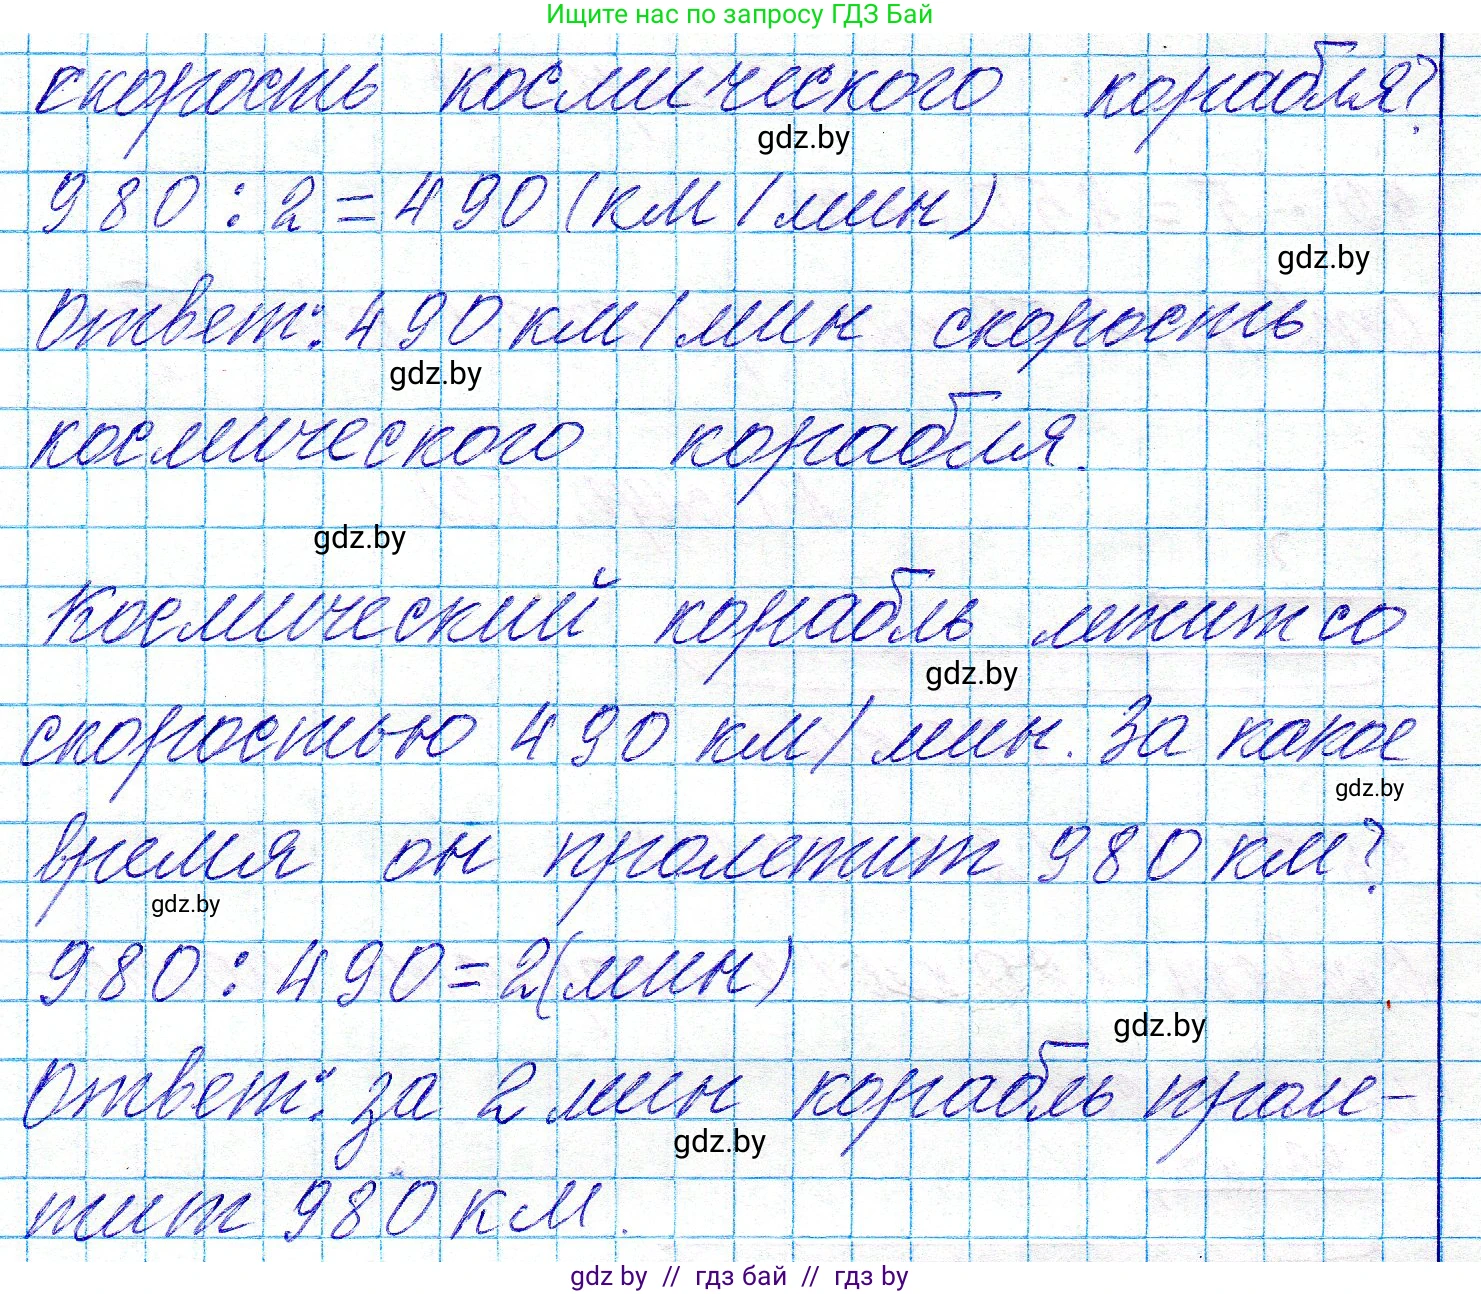 Ищите нас по запросу ГДЗ Бай
скорость космического корабля?
gdz.by
980 : 2 = 490 (км/мин)
gdz.by
Ответ: 490 км/мин скорость
gdz.by
космического корабля.
gdz.by
Космический корабль летит со
gdz.by
скоростью 490 км/мин. За какое
gdz.by
время он пролетит 980 км?
gdz.by
980 : 490 = 2 (мин)
gdz.by
Ответ: за 2 мин корабль проле-
gdz.by
тит 980 км.
gdz by // гдз бай // гдз by